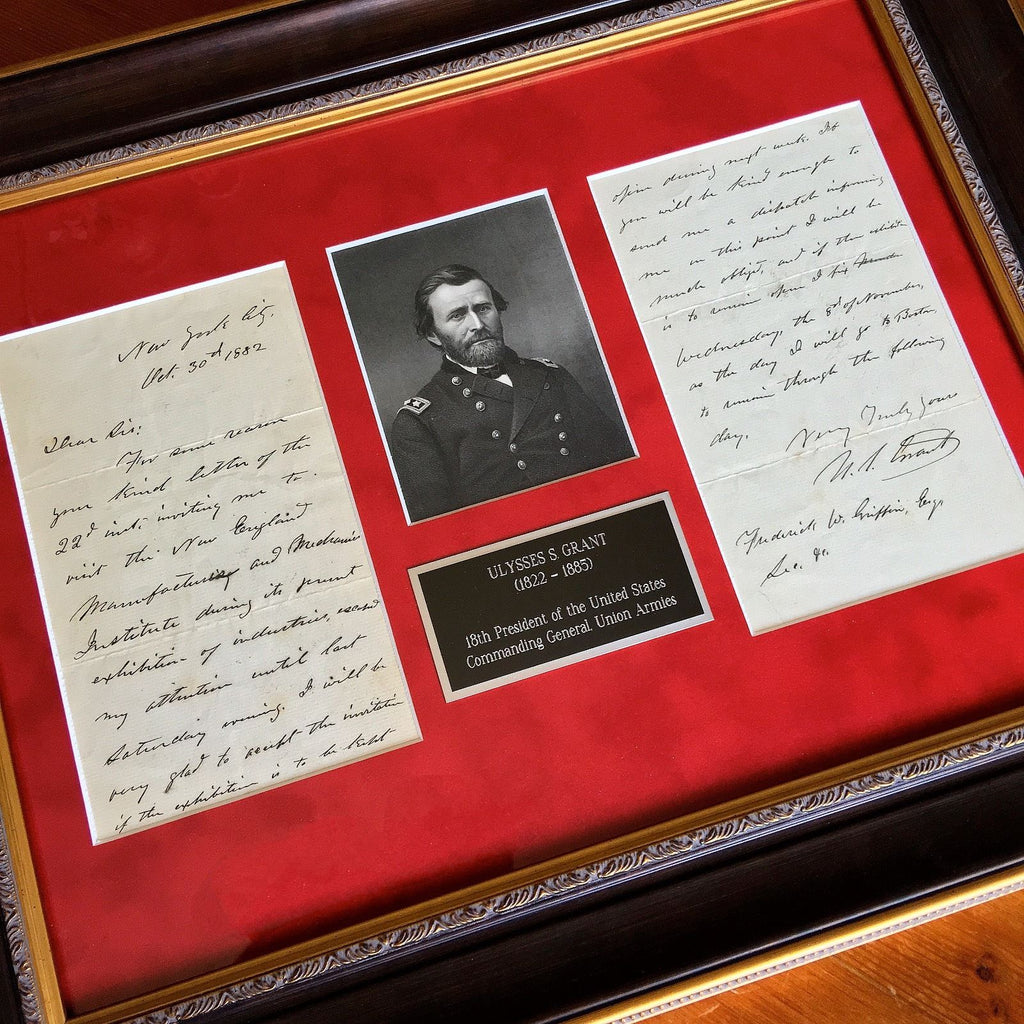 New York City,
Oct. 30th 1882
Dear Sir:
For some reason
your kind letter of the
22d inst. inviting me to
visit the New England
Manufacturing and Mechanics
Institute during its present
exhibition of industries, escaped
my attention until last
Saturday evening. I will be
very glad to accept the invitation
if the exhibition is to be kept
ULYSSES S. GRANT
(1822 – 1885)
18th President of the United States
Commanding General, Union Armies
open during next week. If
you will be kind enough to
send me a dispatch informing
me on this point I will be
much obliged, and if the exhibition
is to remain open I fix
Wednesday, the 8th of November,
as the day I will go to Boston,
to remain through the following
day.
Very Truly yours
U. S. Grant
Frederick W. Griffin, Esq.
Sec. &c.